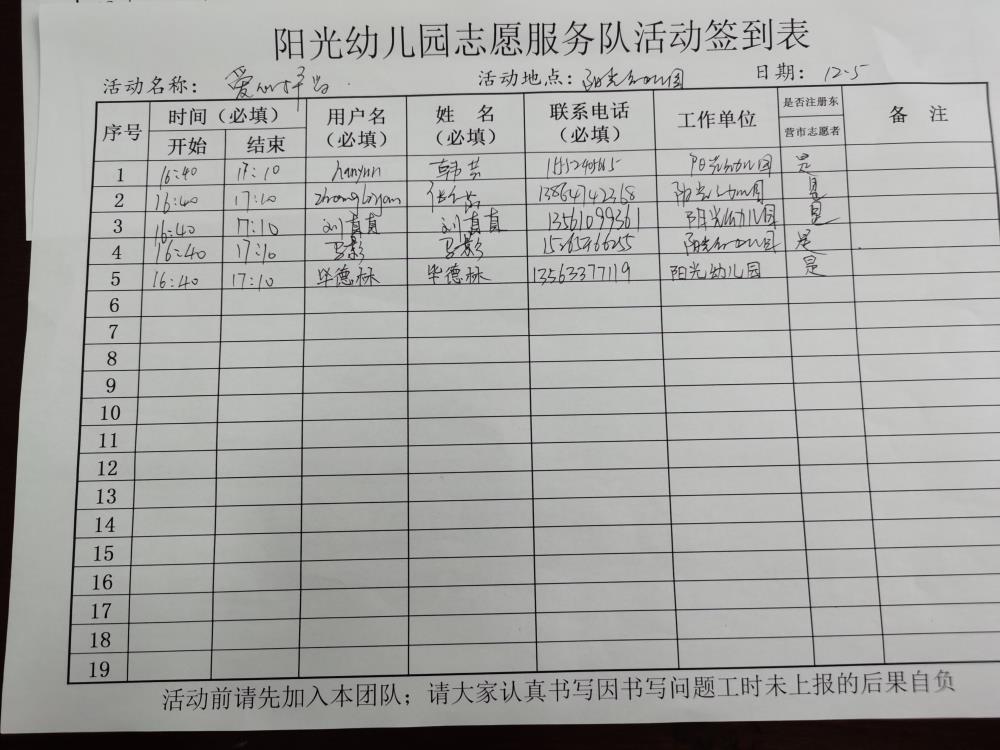 阳光幼儿园志愿服务队活动签到表
活动名称： 爱心 活动地点：阳光幼儿园 日期： 12.5
序号 时间（必填） 用户名（必填） 姓 名（必填） 联系电话（必填） 工作单位 是否注册东营市志愿者 备 注
开始 结束
1 16:40 17:10 hanyun 韩芸 阳光幼儿园 是
2 16:40 17:10 13864742368 阳光幼儿园 是
3 16:40 17:10 刘真真 刘真真 13561099361 阳光幼儿园 是
4 16:40 17:10 阳光幼儿园 是
5 16:40 17:10 毕德林 毕德林 13563377119 阳光幼儿园 是
6
7
8
9
10
11
12
13
14
15
16
17
18
19
活动前请先加入本团队；请大家认真书写因书写问题工时未上报的后果自负